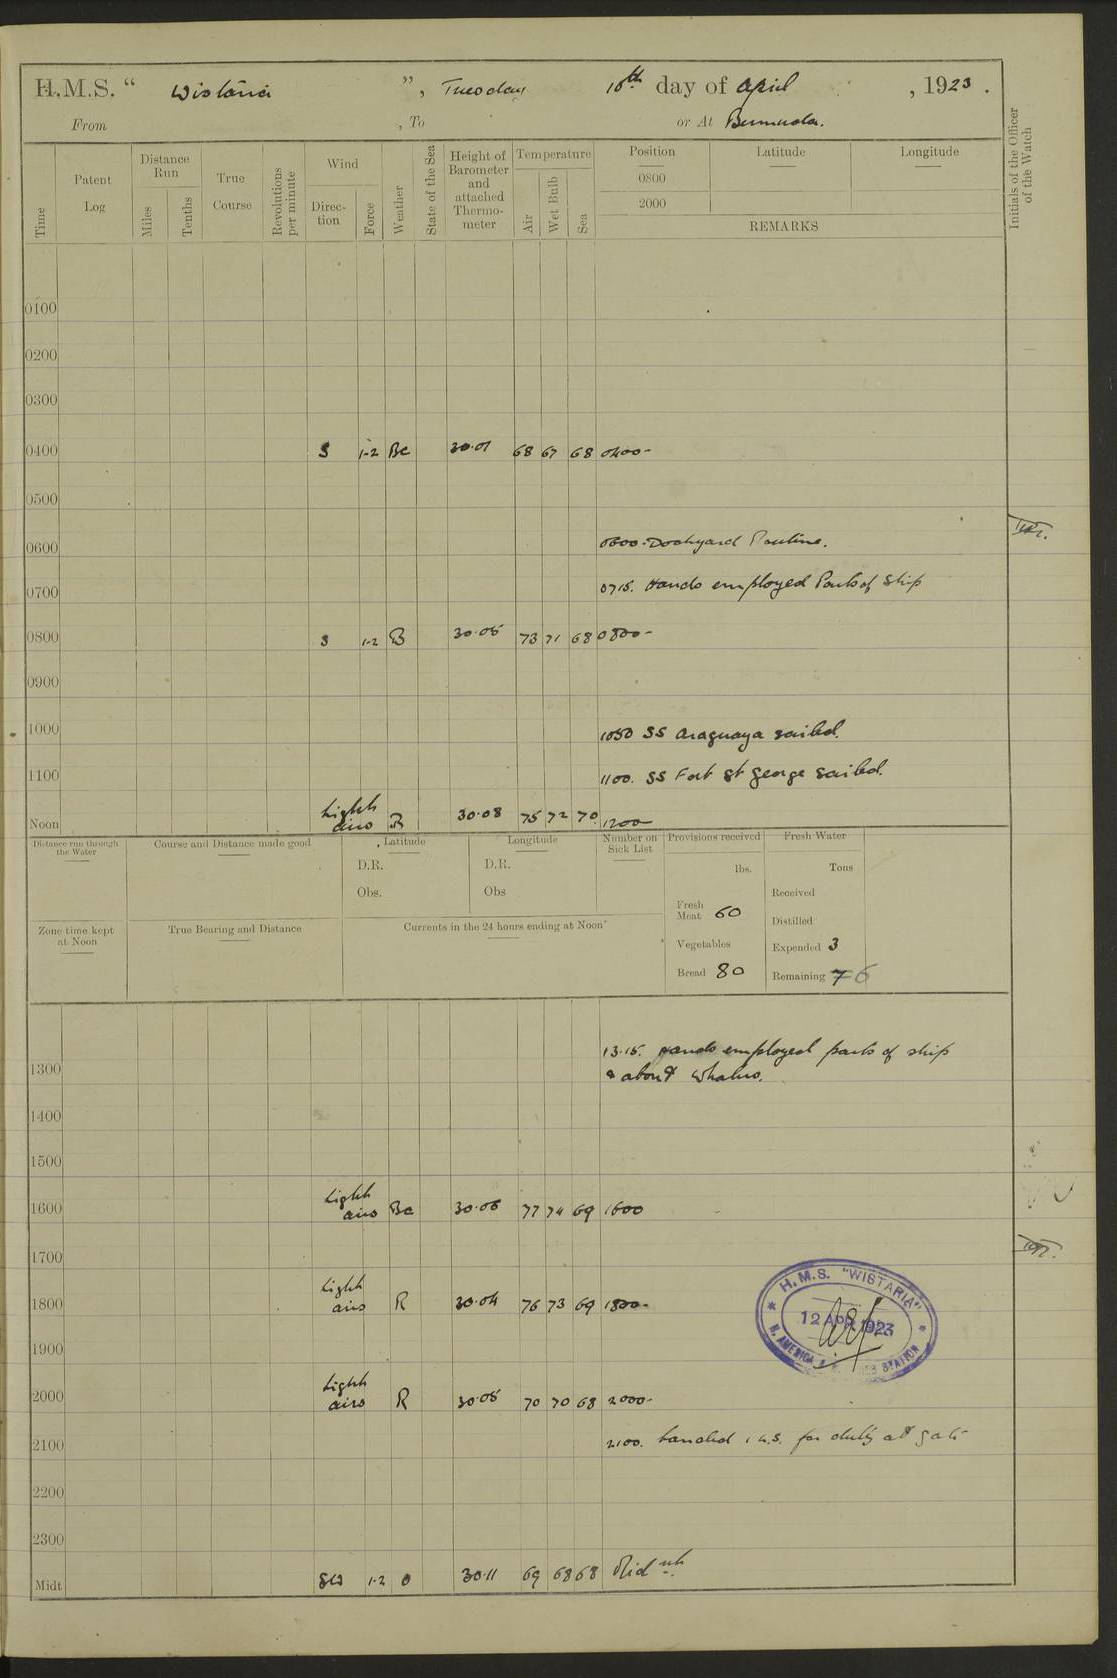 H.M.S. “ Wistaria ”, Tuesday 10th day of April, 1923.
From , To or At Bermuda.
Time
Patent Log
Distance Run
Miles
Tenths
True Course
Revolutions per minute
Wind
Direc-tion
Force
Weather
State of the Sea
Height of Barometer and attached Thermo-meter
Temperature
Air
Wet Bulb
Sea
Position Latitude Longitude
0800
2000
REMARKS
Initials of the Officer of the Watch
0100
0200
0300
0400 S 1-2 Bc 30.01 68 67 68 0400-
0500
0600 0600. Dockyard Routine.
0700 0715. Hands employed Parts of Ship
0800 S 1-2 B 30.05 73 71 68 0800-
0900
1000 1050 SS Araguaya sailed.
1100 1100. SS Fort St George sailed.
Noon Light airs B 30.08 75 72 70 1200
Distance run through the Water
Course and Distance made good
Latitude
D.R.
Obs.
Longitude
D.R.
Obs
Number on Sick List
Provisions received
lbs.
Fresh Meat 60
Vegetables
Bread 80
Fresh Water
Tons
Received
Distilled
Expended 3
Remaining 7 6
Zone time kept at Noon
True Bearing and Distance
Currents in the 24 hours ending at Noon
1300 13.15. Hands employed parts of ship
& about Whalers.
1400
1500
1600 Light airs Bc 30.06 77 74 69 1600
1700
1800 Light airs R 30.04 76 73 69 1800-
1900
2000 Light airs R 30.05 70 70 68 2000-
2100 2100. Landed 1 A.S. for duty at gate
2200
2300
Midt SW 1-2 O 30.11 69 68 68 Mid nt.
H.M.S. "WISTARIA"
12 APR 1923
N. AMERICA & STATION